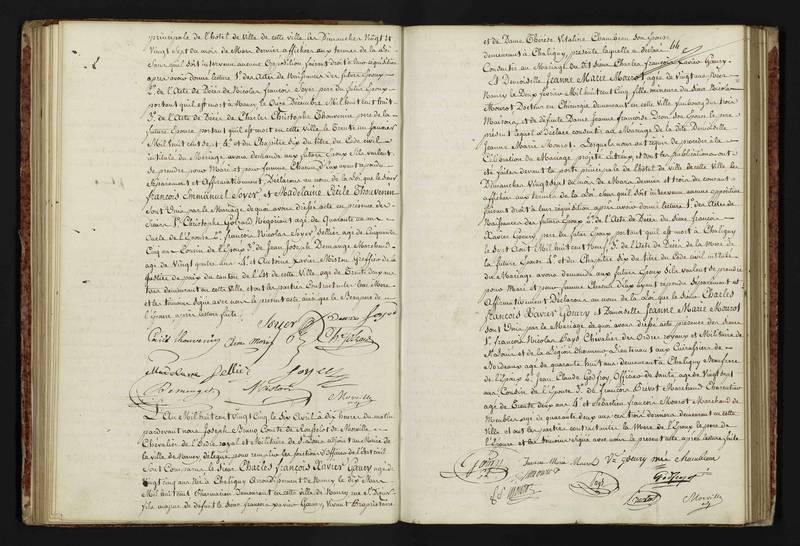 principale de l'hôtel de Ville de cette ville les Dimanches Vingt et
Vingt Sept du mois de Mars dernier afficher aux termes de la Loi
Sans qu'il soit intervenu aucune Opposition faisant droit à leur réquisition
après avoir donné lecture 1.° des Actes de Naissances des futurs Epoux
2.° de l'Acte de Décès de Nicolas François Soyer père du futur Epoux
portant qu'il est mort à Nancy le Onze Décembre Mil huit cent huit
3.° de l'Acte de Décès de Charles Christophe Thouvenin père de la
future Epouse portant qu'il est mort en cette Ville le Trente un Janvier
Mil huit cent et 4.° du Chapitre Six du titre du Code Civil
intitulé du Mariage avons demandé aux futurs Epoux s'ils veulent
se prendre pour Mari et pour femme Chacun d'eux ayant répondu
Séparément et Affirmativement Déclarons au nom de la Loi que le Sieur
François Emmanuel Soyer et Madelaine Cécile Thouvenin
sont Unis par le Mariage de quoi avons dressé acte en présence de
Sieurs 1.° Christophe Négociant agé de Quarante
Oncle de l'Epouse 2.° François Nicolas Soyer Sellier agé de
Cinq ans Cousin de l'Epoux 3.° de Jean Joseph Demange Marchand
agé de Vingt 4.° et Antoine Xavier Miston Greffier de la
Justice de paix du canton de l'Est de cette Ville agé de Trente deux ans
tous demeurant en cette Ville et ont les parties Contractantes leurs Mères
et les témoins Signé avec nous le présent acte ainsi que le
l'Epoux après lecture faite
Soyer
Cécile Thouvenin
Madelaine Pellier
Soyer
Demange
Miston
Morville
L'An Mil huit cent Vingt Cinq le Six Avril à dix heures du matin
pardevant nous Joseph Comte de de Morville
Chevalier de l'Ordre royal et Militaire de St Louis adjoint au Maire de
la Ville de Nancy délégué pour remplir les fonctions d'Officier de l'Etat civil
Sont Comparus le Sieur Charles François Xavier Goury agé de
Vingt cinq ans né à Chaligny Arrondissement de Nancy le dix Mars
Mil huit cent demeurant en cette ville de Nancy
fils majeur de défunt le Sieur François Xavier Goury, Vivant Propriétaire
64
et de Dame Thérèse Vitaline Chambeau Son Epouse
demeurant à Chaligny, présente laquelle a déclaré
Consentir au Mariage du dit Sieur Charles François Xavier Goury
Et Demoiselle Jeanne Marie Mourot agée de Vingt ans Née à
Nancy le Deux Février Mil huit cent Cinq fille mineure du Sieur Nicolas
Mourot Docteur en Chirurgie demeurant en cette Ville faubourg des trois
Maisons et de défunte Dame Jeanne Françoise son Epouse le père
présent lequel a déclaré consentir au Mariage de la dite Demoiselle
Jeanne Marie Mourot. Lesquels nous ont requis de procéder à la
Célébration du Mariage projeté entr'eux et dont les publications ont
été faites devant la porte principale de l'hôtel de ville de cette Ville les
Dimanches Vingt sept du mois de Mars dernier et trois du courant
afficher aux termes de la Loi sans qu'il soit intervenu aucune opposition
faisant droit à leur réquisition après avoir donné lecture 1.° des Actes de
Naissances des futurs Epoux 2.° de l'Acte de Décès du Sieur François
Xavier Goury père du futur Epoux portant qu'il est mort à Chaligny
le Sept Août Mil huit cent Neuf 3.° de l'Acte de Décès de la Mère de
la future Epouse 4.° et du Chapitre Six du titre du Code Civil intitulé
du Mariage avons demandé aux futurs Epoux s'ils veulent se prendre
pour Mari et pour femme Chacun d'eux ayant répondu Séparément et
Affirmativement Déclarons au nom de la Loi que le Sieur Charles
François Xavier Goury et Demoiselle Jeanne Marie Mourot
sont Unis par le Mariage de quoi avons dressé acte présence des Sieurs
1.° François Nicolas Pays Chevalier des Ordres royaux et Militaire de
St Louis et de la Légion d'honneur Lieutenant aux Cuirassiers de
Bordeaux agé de quarante huit ans demeurant à Chaligny
de l'Epoux 2.° Jean Claude Godfroy Officier de Santé agé de Vingt sept
ans Cousin de l'Epouse 3.° de François Prévot Marchand Charcutier
agé de Trente deux ans 4.° et Sébastien François Mourot Marchand de
Meubles agé de quarante deux ans ces trois derniers demeurant en cette
Ville et ont les parties contractantes la Mère de l'Epoux le père de
l'Epouse et les témoins Signé avec nous le présent acte après lecture faite
Goury
Jeanne Marie Mourot
Vve Goury née Chambeau
Mourot
Pays
Godfroy
Prévot
Morville